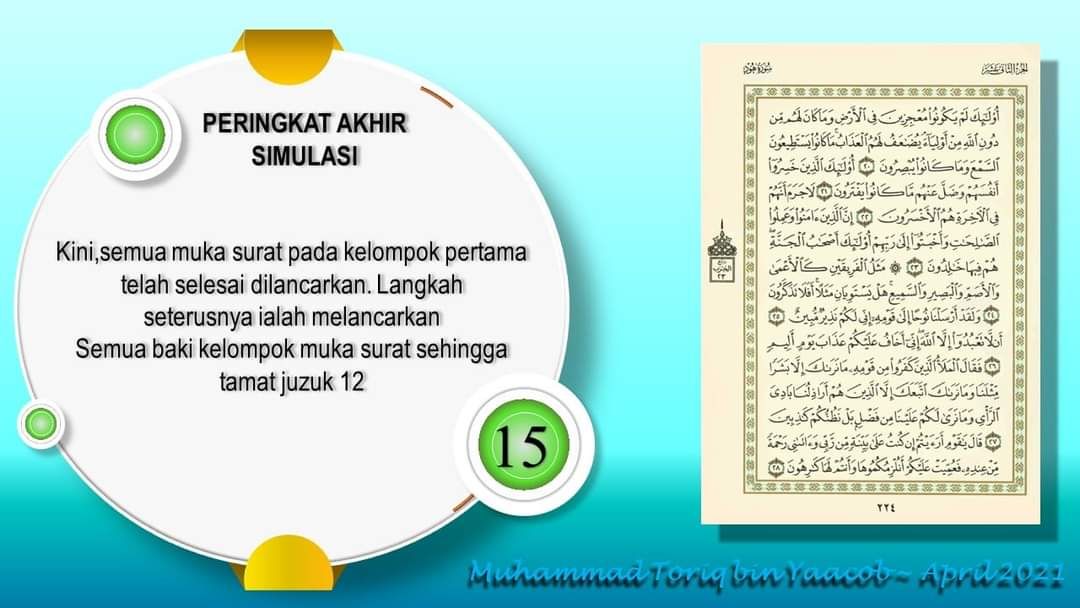 PERINGKAT AKHIR
SIMULASI
Kini,semua muka surat pada kelompok pertama
telah selesai dilancarkan. Langkah
seterusnya ialah melancarkan
Semua baki kelompok muka surat sehingga
tamat juzuk 12
15
سُورَةُ هُودٍ
الجُزْءُ الثَّانِي عَشَرَ
أُوْلَٰٓئِكَ لَمْ يَكُونُوا۟ مُعْجِزِينَ فِى ٱلْأَرْضِ وَمَا كَانَ لَهُم مِّن
دُونِ ٱللَّهِ مِنْ أَوْلِيَآءَ يُضَٰعَفُ لَهُمُ ٱلْعَذَابُ مَا كَانُوا۟ يَسْتَطِيعُونَ
ٱلسَّمْعَ وَمَا كَانُوا۟ يُبْصِرُونَ ٢٠ أُوْلَٰٓئِكَ ٱلَّذِينَ خَسِرُوٓا۟
أَنفُسَهُمْ وَضَلَّ عَنْهُم مَّا كَانُوا۟ يَفْتَرُونَ ٢١ لَا جَرَمَ أَنَّهُمْ
فِى ٱلْأَخِرَةِ هُمُ ٱلْأَخْسَرُونَ ٢٢ إِنَّ ٱلَّذِينَ ءَامَنُوا۟ وَعَمِلُوا۟
ٱلصَّٰلِحَٰتِ وَأَخْبَتُوٓا۟ إِلَىٰ رَبِّهِمْ أُوْلَٰٓئِكَ أَصْحَٰبُ ٱلْجَنَّةِ
هُمْ فِيهَا خَٰلِدُونَ ٢٣ ۞ مَثَلُ ٱلْفَرِيقَيْنِ كَٱلْأَعْمَىٰ
وَٱلْأَصَمِّ وَٱلْبَصِيرِ وَٱلسَّمِيعِ هَلْ يَسْتَوِيَانِ مَثَلًا أَفَلَا تَذَكَّرُونَ
٢٤ وَلَقَدْ أَرْسَلْنَا نُوحًا إِلَىٰ قَوْمِهِۦٓ إِنِّى لَكُمْ نَذِيرٌ مُّبِينٌ ٢٥
أَن لَّا تَعْبُدُوٓا۟ إِلَّا ٱللَّهَ إِنِّىٓ أَخَافُ عَلَيْكُمْ عَذَابَ يَوْمٍ أَلِيمٍ
٢٦ فَقَالَ ٱلْمَلَأُ ٱلَّذِينَ كَفَرُوا۟ مِن قَوْمِهِۦ مَا نَرَىٰكَ إِلَّا بَشَرًا
مِّثْلَنَا وَمَا نَرَىٰكَ ٱتَّبَعَكَ إِلَّا ٱلَّذِينَ هُمْ أَرَاذِلُنَا بَادِىَ
ٱلرَّأْىِ وَمَا نَرَىٰ لَكُمْ عَلَيْنَا مِن فَضْلٍۭ بَلْ نَظُنُّكُمْ كَٰذِبِينَ
٢٧ قَالَ يَٰقَوْمِ أَرَءَيْتُمْ إِن كُنتُ عَلَىٰ بَيِّنَةٍ مِّن رَّبِّى وَءَاتَىٰنِى رَحْمَةً
مِّنْ عِندِهِۦ فَعُمِّيَتْ عَلَيْكُمْ أَنُلْزِمُكُمُوهَا وَأَنتُمْ لَهَا كَٰرِهُونَ ٢٨
الحزب
٢٣
٢٢٤
Muhammad Toriq bin Yaacob ~ April 2021